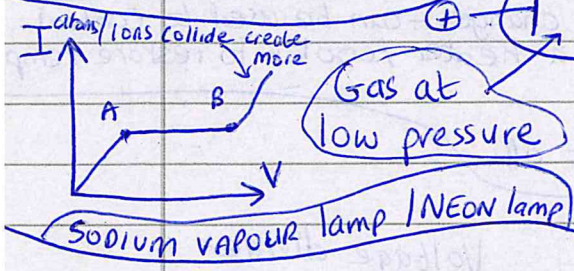 I
atoms/Ions collide create
More
A
B
V
Gas at
low pressure
+
SODIUM VAPOUR lamp / NEON lamp
Voltage